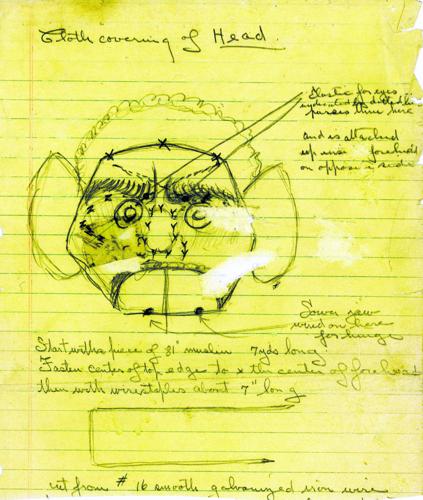 Cloth covering of Head.
Elastic for eyes
indicated by dotted line
passes thru here
and is attached
up near forehead
on opposite side
wind on here
for hinge
Start with a piece of 31" muslin 7 yds long
Fasten center of top edge to x the center of forehead
then with wire staples about 7" long
cut from # 16 smooth galvanized iron wire